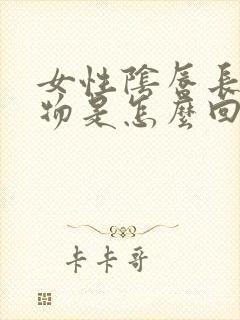 女性陰唇長
物是怎麼回
卡卡哥